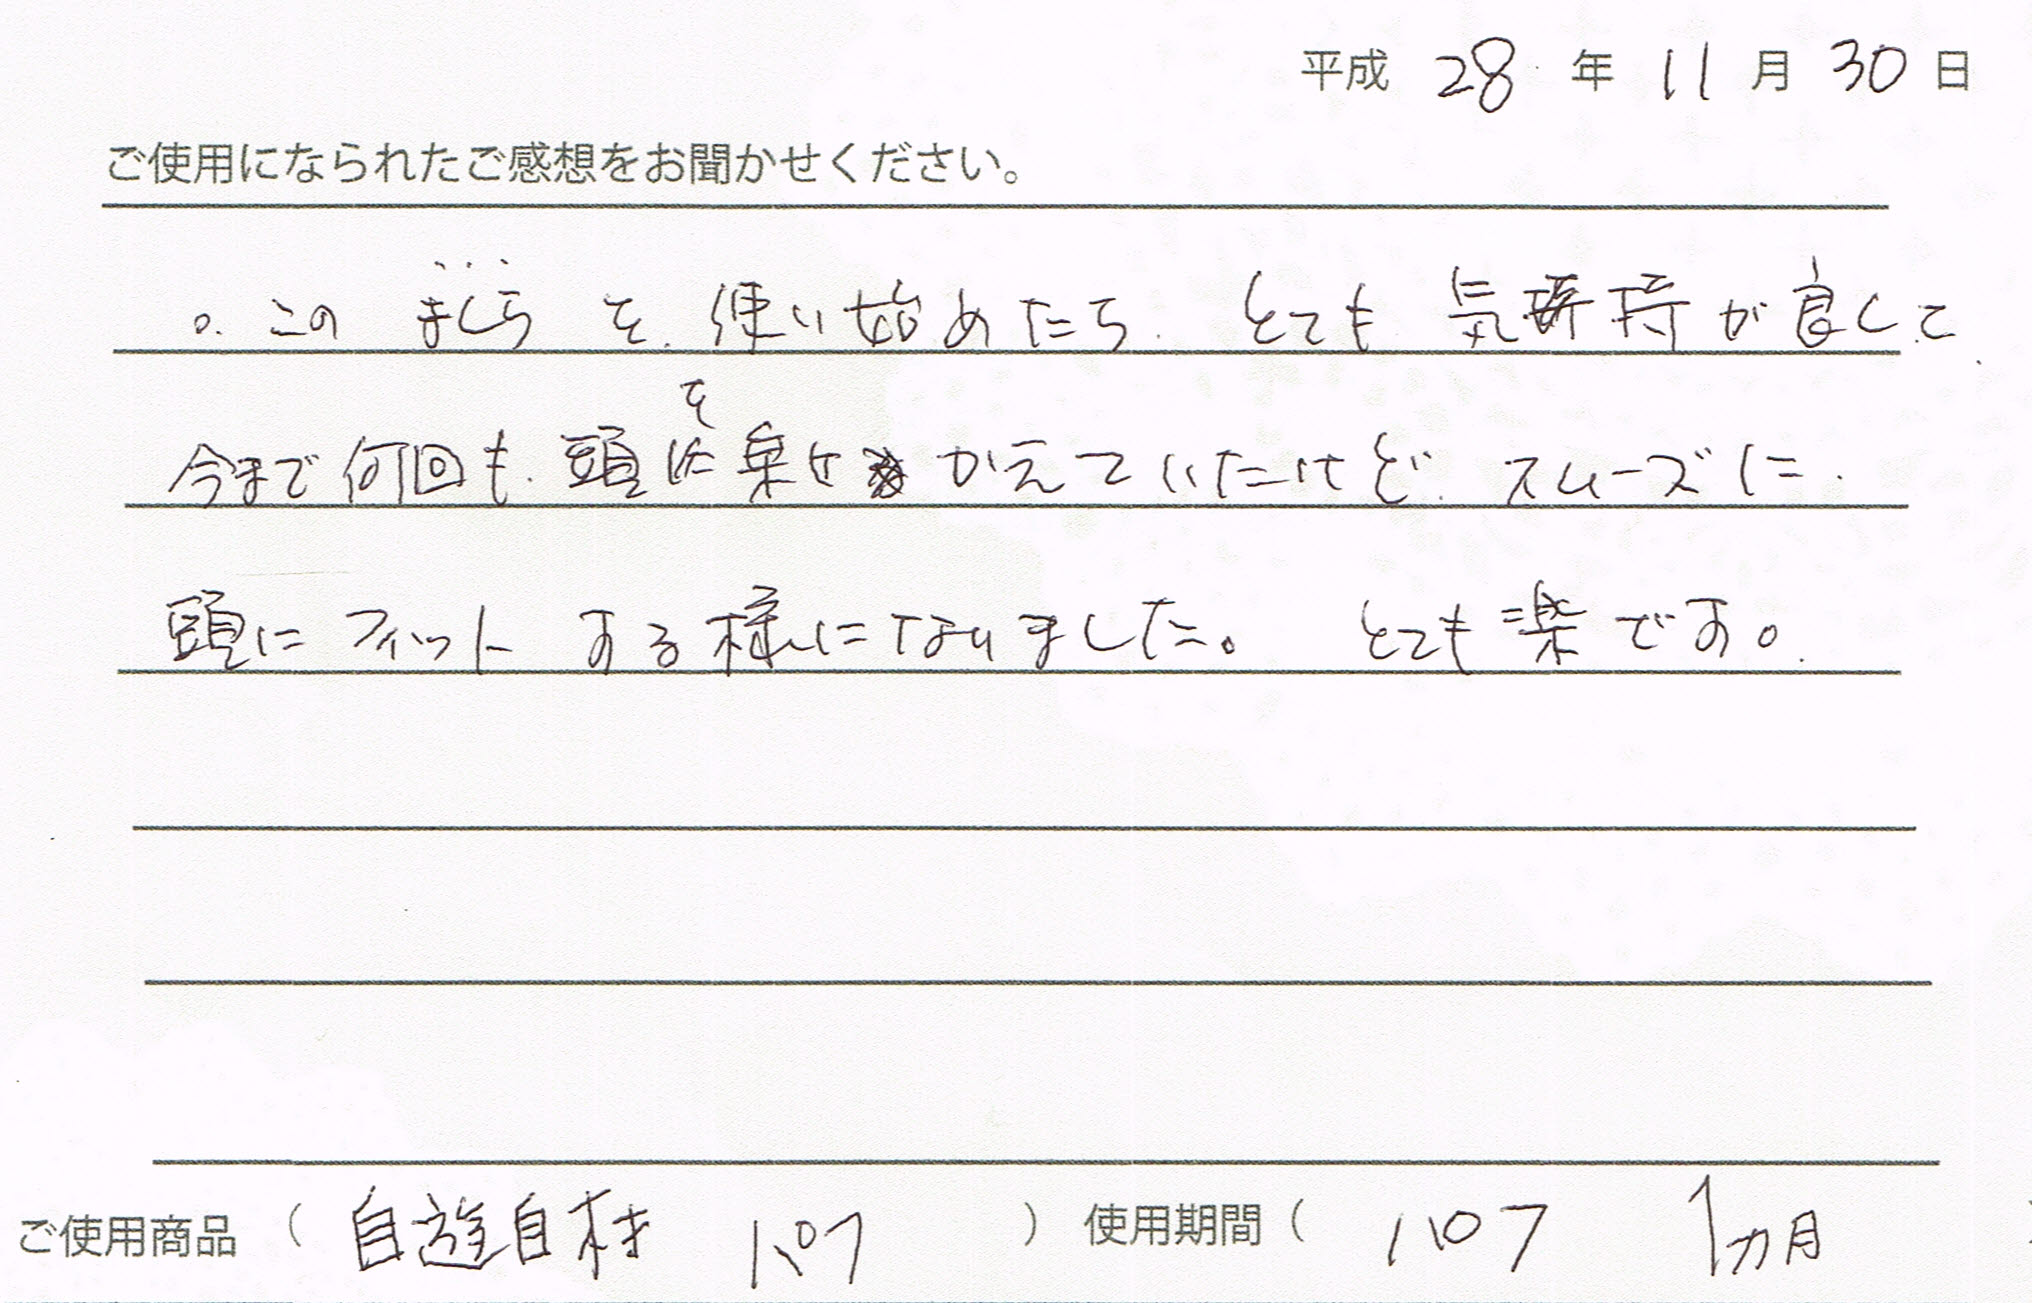 平成 28 年 11 月 30 日
ご使用になられたご感想をお聞かせください。
。この まくら を 使い始めたら とても 気持が良くて
今まで何回も 頭を乗せかえていたけど スムーズに
頭に フィット する様になりました。 とても楽です。
ご使用商品 ( 自遊自材 ) 使用期間 ( 1ヵ月